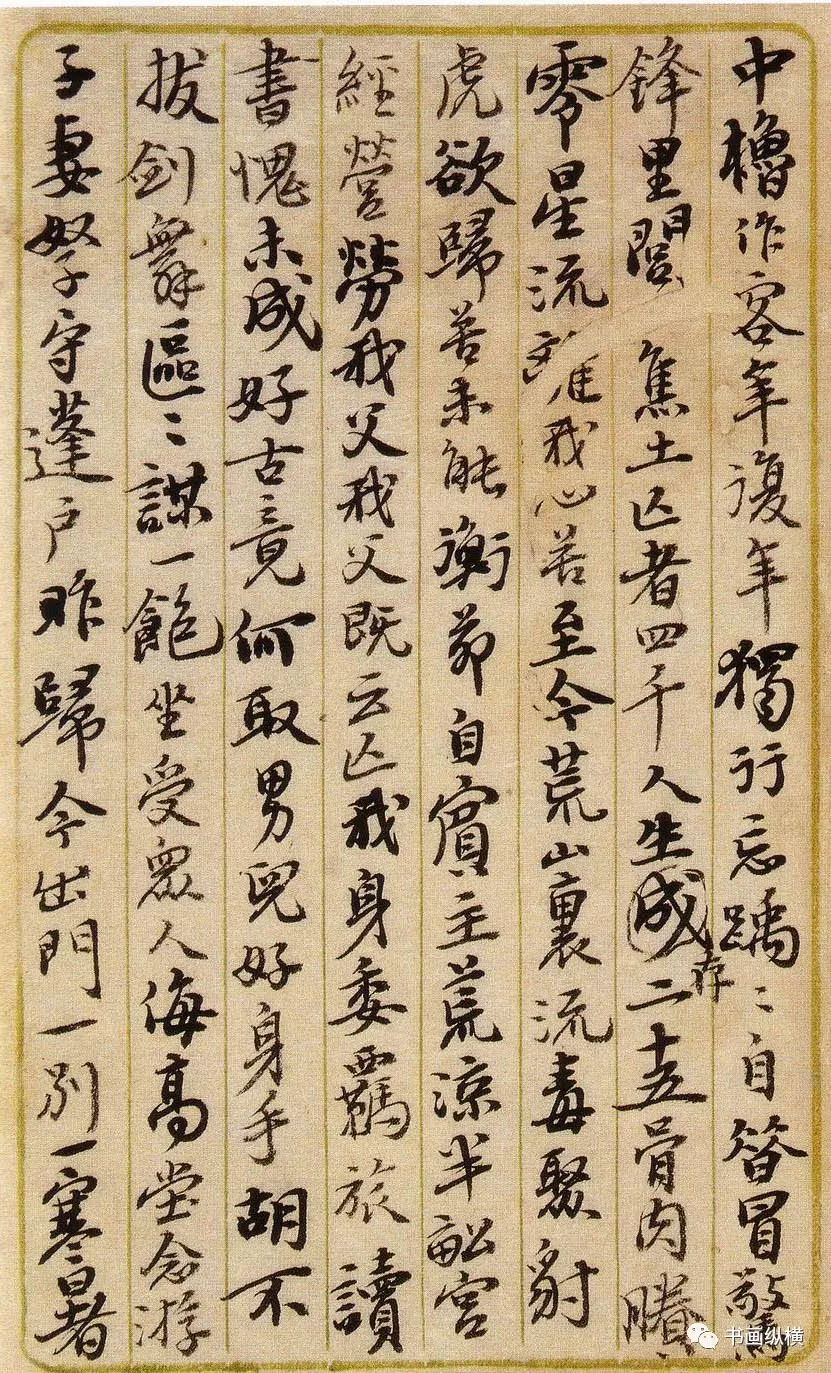 中櫓作客年復年獨行忘踽〻自簪冒驚
鋒里閭焦土亡者四千人生成存二十五骨肉賸
零星流離我心苦至今荒山裏流毒聚豺
虎欲歸苦未能衡茆自賓主荒涼半畝宮
經營勞我父我父既云亡我身委羈旅讀
書愧未成好古竟何取男兒好身手胡不
拔劍舞區〻謀一飽坐受眾人侮高堂念游
子妻孥守蓬戶昨歸今出門一別一寒暑
书画纵横